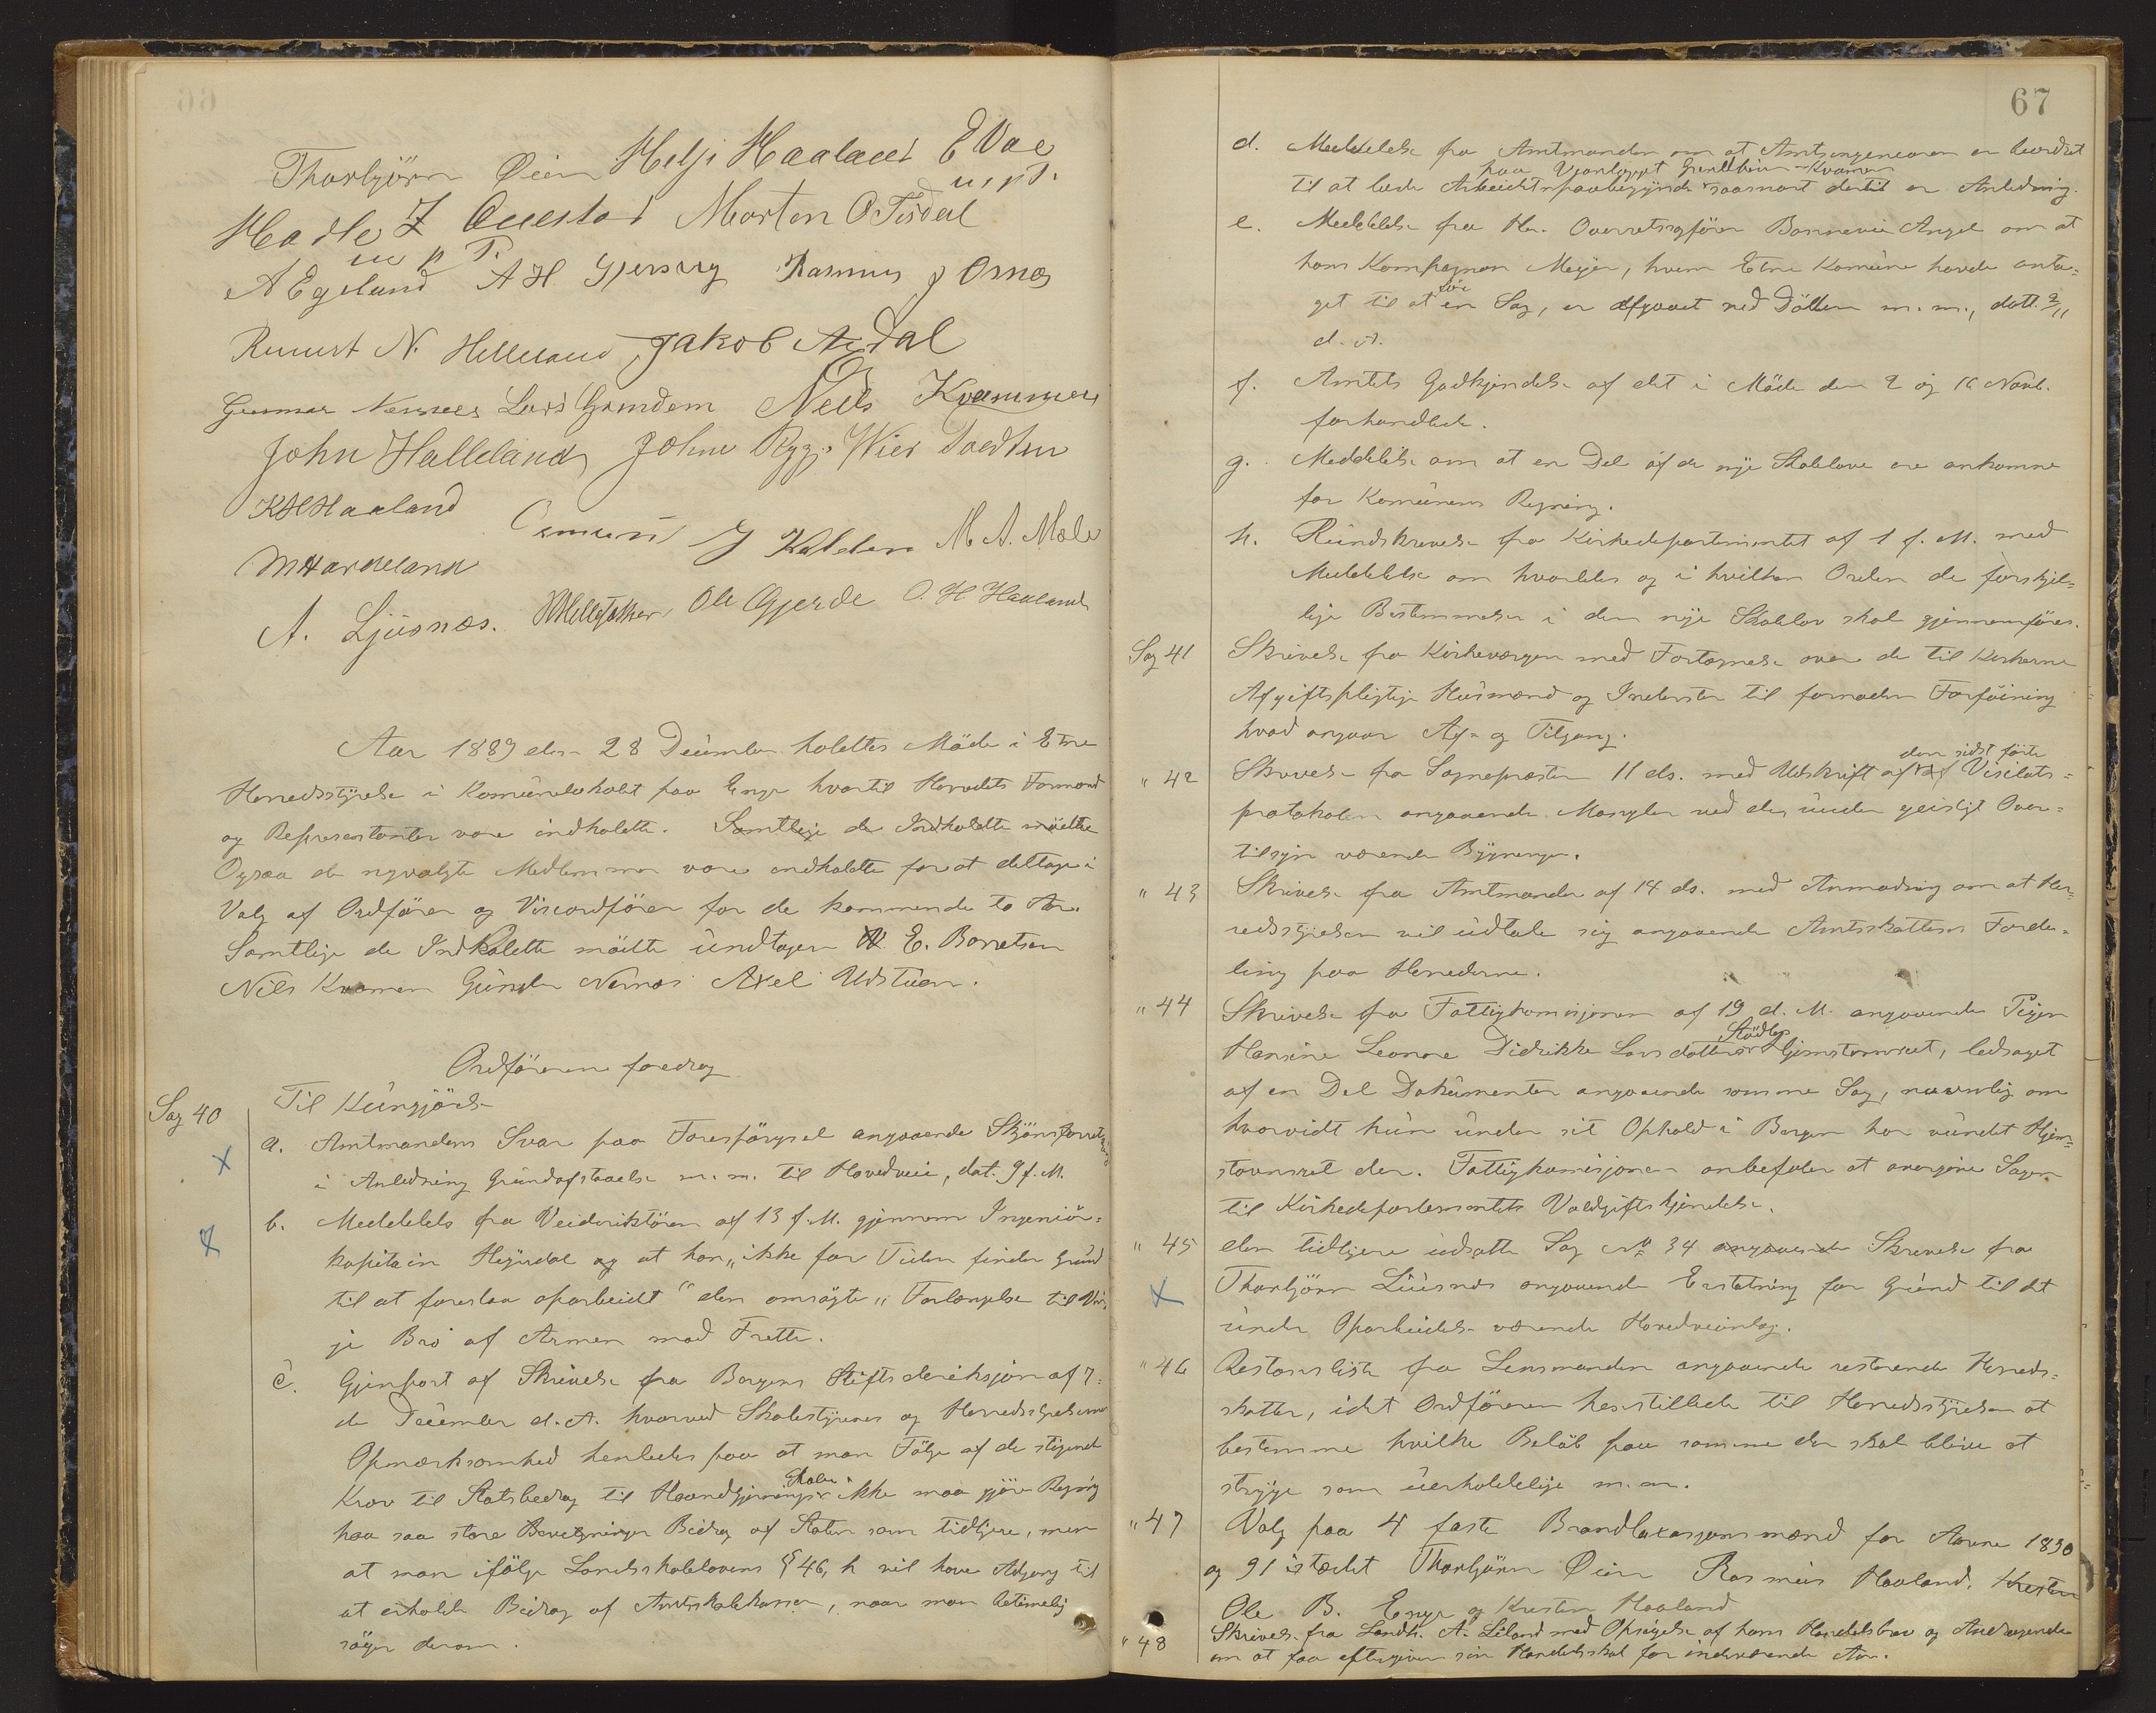 Thorbjörn Øien Helje Haaland E Vae
m. p. P.
Hadle J Questad Morten O Tesdal
m p P.
A Egeland A H Gjersvig Rasmus J Osnes
N. Helleland Jakob Aedal
Gunnar Nernæs Lars Grindem Nels Kvammen
John Halleland John Rygg
K H Haaland Osmund J Kalden M A. Mæle
M Hardeland
A. Ljüsnæs. Ole Gjerde O. H Haaland
Aar 1889 den 28 December holdtes Möde i Etne
Herredsstyrelse i Komünelokalet paa Enge hvortil Herredets Formænd
og Representanter vare indkaldte. Samtlige de Indkaldte mödte
Ogsaa de nyvalgte Medlemmer vare indkaldte for at deltage i
Valg af Ordförer og Viceordförer for de kommende to Aar.
Samtlige de Indkaldte mödte undtagen E. Borretsen
Nils Kvamen Günder Nernæs Axel Udstüen.
Ordföreren foredrog
Sag 40 Til Kündgjörelse
a. Amtmandens Svar paa Forespörgsel angaaende Skjönsforretning
i Anledning Gründafstaaelse m. m. til Hovedveie, dat. 9 f. M.
b. Meddelels fra Veidirektören af 13 f. M. gjennem Ingeniör-
kapitain Heyerdal og at han "ikke for Tiden finder Grund
til at foreslaa oparbeidet" den omsögte "Forlængelse til Vin-
je Bro af Armen mod Frette.
c. Gjenpart af Skrivelse fra Bergens Stiftsdireksjon af 7-
de December d. A. hvorved Skolestyrenes og Herredsstyrelsernes
Opmærksomhed henledes paa at man Fölge af de stigende
Krav til Statsbedrag til Haandgjernings Skoler ikke maa gjöre Regning
paa saa store Bevilgninger Bidrag af Staten som tidligere, men
at man ifölge Landsskolelovens § 46, h vil have Adgang til
at erholde Bidrag af Amtsskolekassen, naar man betimelig
söger derom.
67
d. Meddelelse fra Amtmanden om at Amtsingeniøren er beordret
paa Veianlægget Grindheim - Kvamen
til at lade Arbeidet paabegynde saasnart dertil er Anledning.
e. Meddelelse fra Hr. Overretssagförer Bonnevie Angel om at
hans Kompagnon Meyer, hvem Etne Komüne havde anta-
get til at före en Sag, er afgaaet ved Döden m. m., datt. 2/11
d. A.
f. Amtets Godkjendelse af det i Möde den 2 og 16 Novb.
forhandlede.
g. Meddelelse om at en Del af de nye Skolelove ere ankomne
for Komünens Regning.
h. Ründskrivelse fra Kirkedepartementet af 1 f. M. med
Meddelelse om hvorledes og i hvilken Orden de forskjel-
lige Bestemmelser i den nye Skolelov skal gjennemföres.
Sag 41 Skrivelse fra Kirkeværgen med Fortegnelse over de til Kirkerne
Afgiftspligtige Husmænd og Inderster til fornøden Forföining
hvad angaar Af- og Tilgang.
" 42 Skrivelse fra Sognepresten 11 ds. med Udskrift af den sidst förte Visitats-
protokolen angaaende Mangler ved de under geistligt Over-
tilsyn værende Bygninger.
" 43 Skrivelse fra Amtmanden af 14 ds. med Anmodning om at Her-
redsstyrelsen vil udtale sig angaaende Amtsskattens Forde-
ling paa Herrederne.
" 44 Skrivelse fra Fattigkomisjonen af 19 d. M. angaaende Pigen
Hansine Leonore Didrikke Lars datter Stödles Hjemstavnsret, ledsaget
af en Del Dokümenter angaaende samme Sag, navnlig om
hvorvidt hün ünder sit Ophold i Bergen har vündet Hjem-
stavnsret der. Fattigkomisjonen anbefaler at overgive Sagen
til Kirkedepartementets Voldgiftskjendelse.
" 45 den tidligere üdsatte Sag No 34 angaaende Skrivelse fra
Thorbjörn Liüsnes angaaende Erstatning for Gründ til det
ünder Oparbeidelse værende Hovedveianlæg.
" 46 Restanseliste fra Lensmanden angaaende resterende Herreds-
skatter, idet Ordföreren henstillede til Herredsstyrelsen at
bestemme hvilke Belöb paa samme der skal blive at
stryge som üerholdelige m. m.
" 47 Valg paa 4 faste Brandtaxasjonsmænd for Aarene 1890
og 91 istædet Thorbjörn Øien Rasmus Haaland, Kresten
Ole B. Enge og Kresten Haaland
" 48 Skrivelse fra Landh. A. Liland med Opsigelse af hans Handelsbrev og Andragende
om at faa eftergiven sin Handelsskat for indeværende Aar.